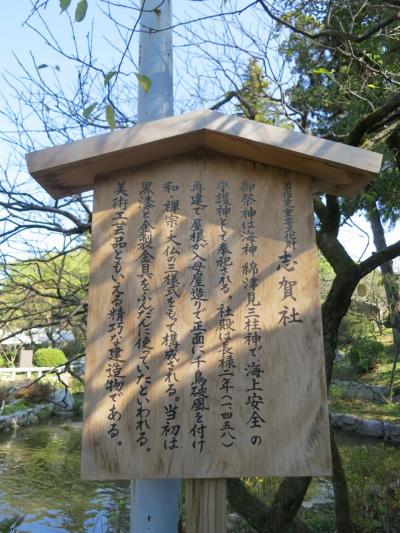 国指定重要文化財 志賀社
御祭神は海神 綿津見三柱神で、海上安全の
守護神として奉祀される。社殿は長禄二年(一四五八)
再建で屋根入母屋造りで正面に千鳥破風を付け
和・禅宗・大仏の三様式をもって構成される。当初は
黒漆と金製金具をふんだんに使っていたといわれる。
美術工芸品ともいえる精巧な建造物である。